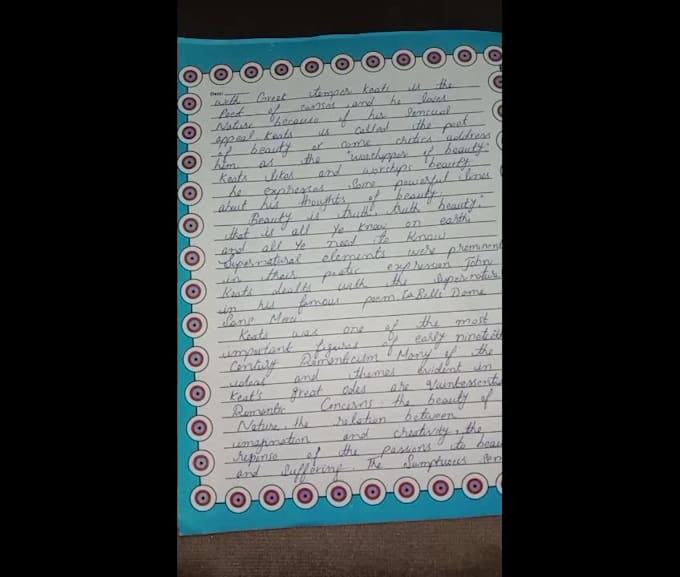 Date:
with Greek temper Keats is the
Poet of canses, and he loves
Nature because of his Sencual
appeal Keats is called the poet
of beauty or come chritics address
him as the "worshypper of beauty"
Keats likes and worships beauty
he expresses Some powerful lines
about his thoughts of beauty.
Beauty is truth, truth beauty,"
that is all Ye know on earth
and all Ye need to know
Supernatural elements were prominent
in their poetic expression John
Keats dealts with the Supernatural
in his famous poem La Belle Dame
Sans Merci
Keats was one of the most
important figures of early nineteeth
Century Romanticism Many of the
ideas and themes evident in
Keat's great odes are Quintessential
Romantic Concerns: the beauty of
Nature, the relation between
imagination and creativity, the
response of the Passions to beau
and Suffering. The Sumptuous Sen